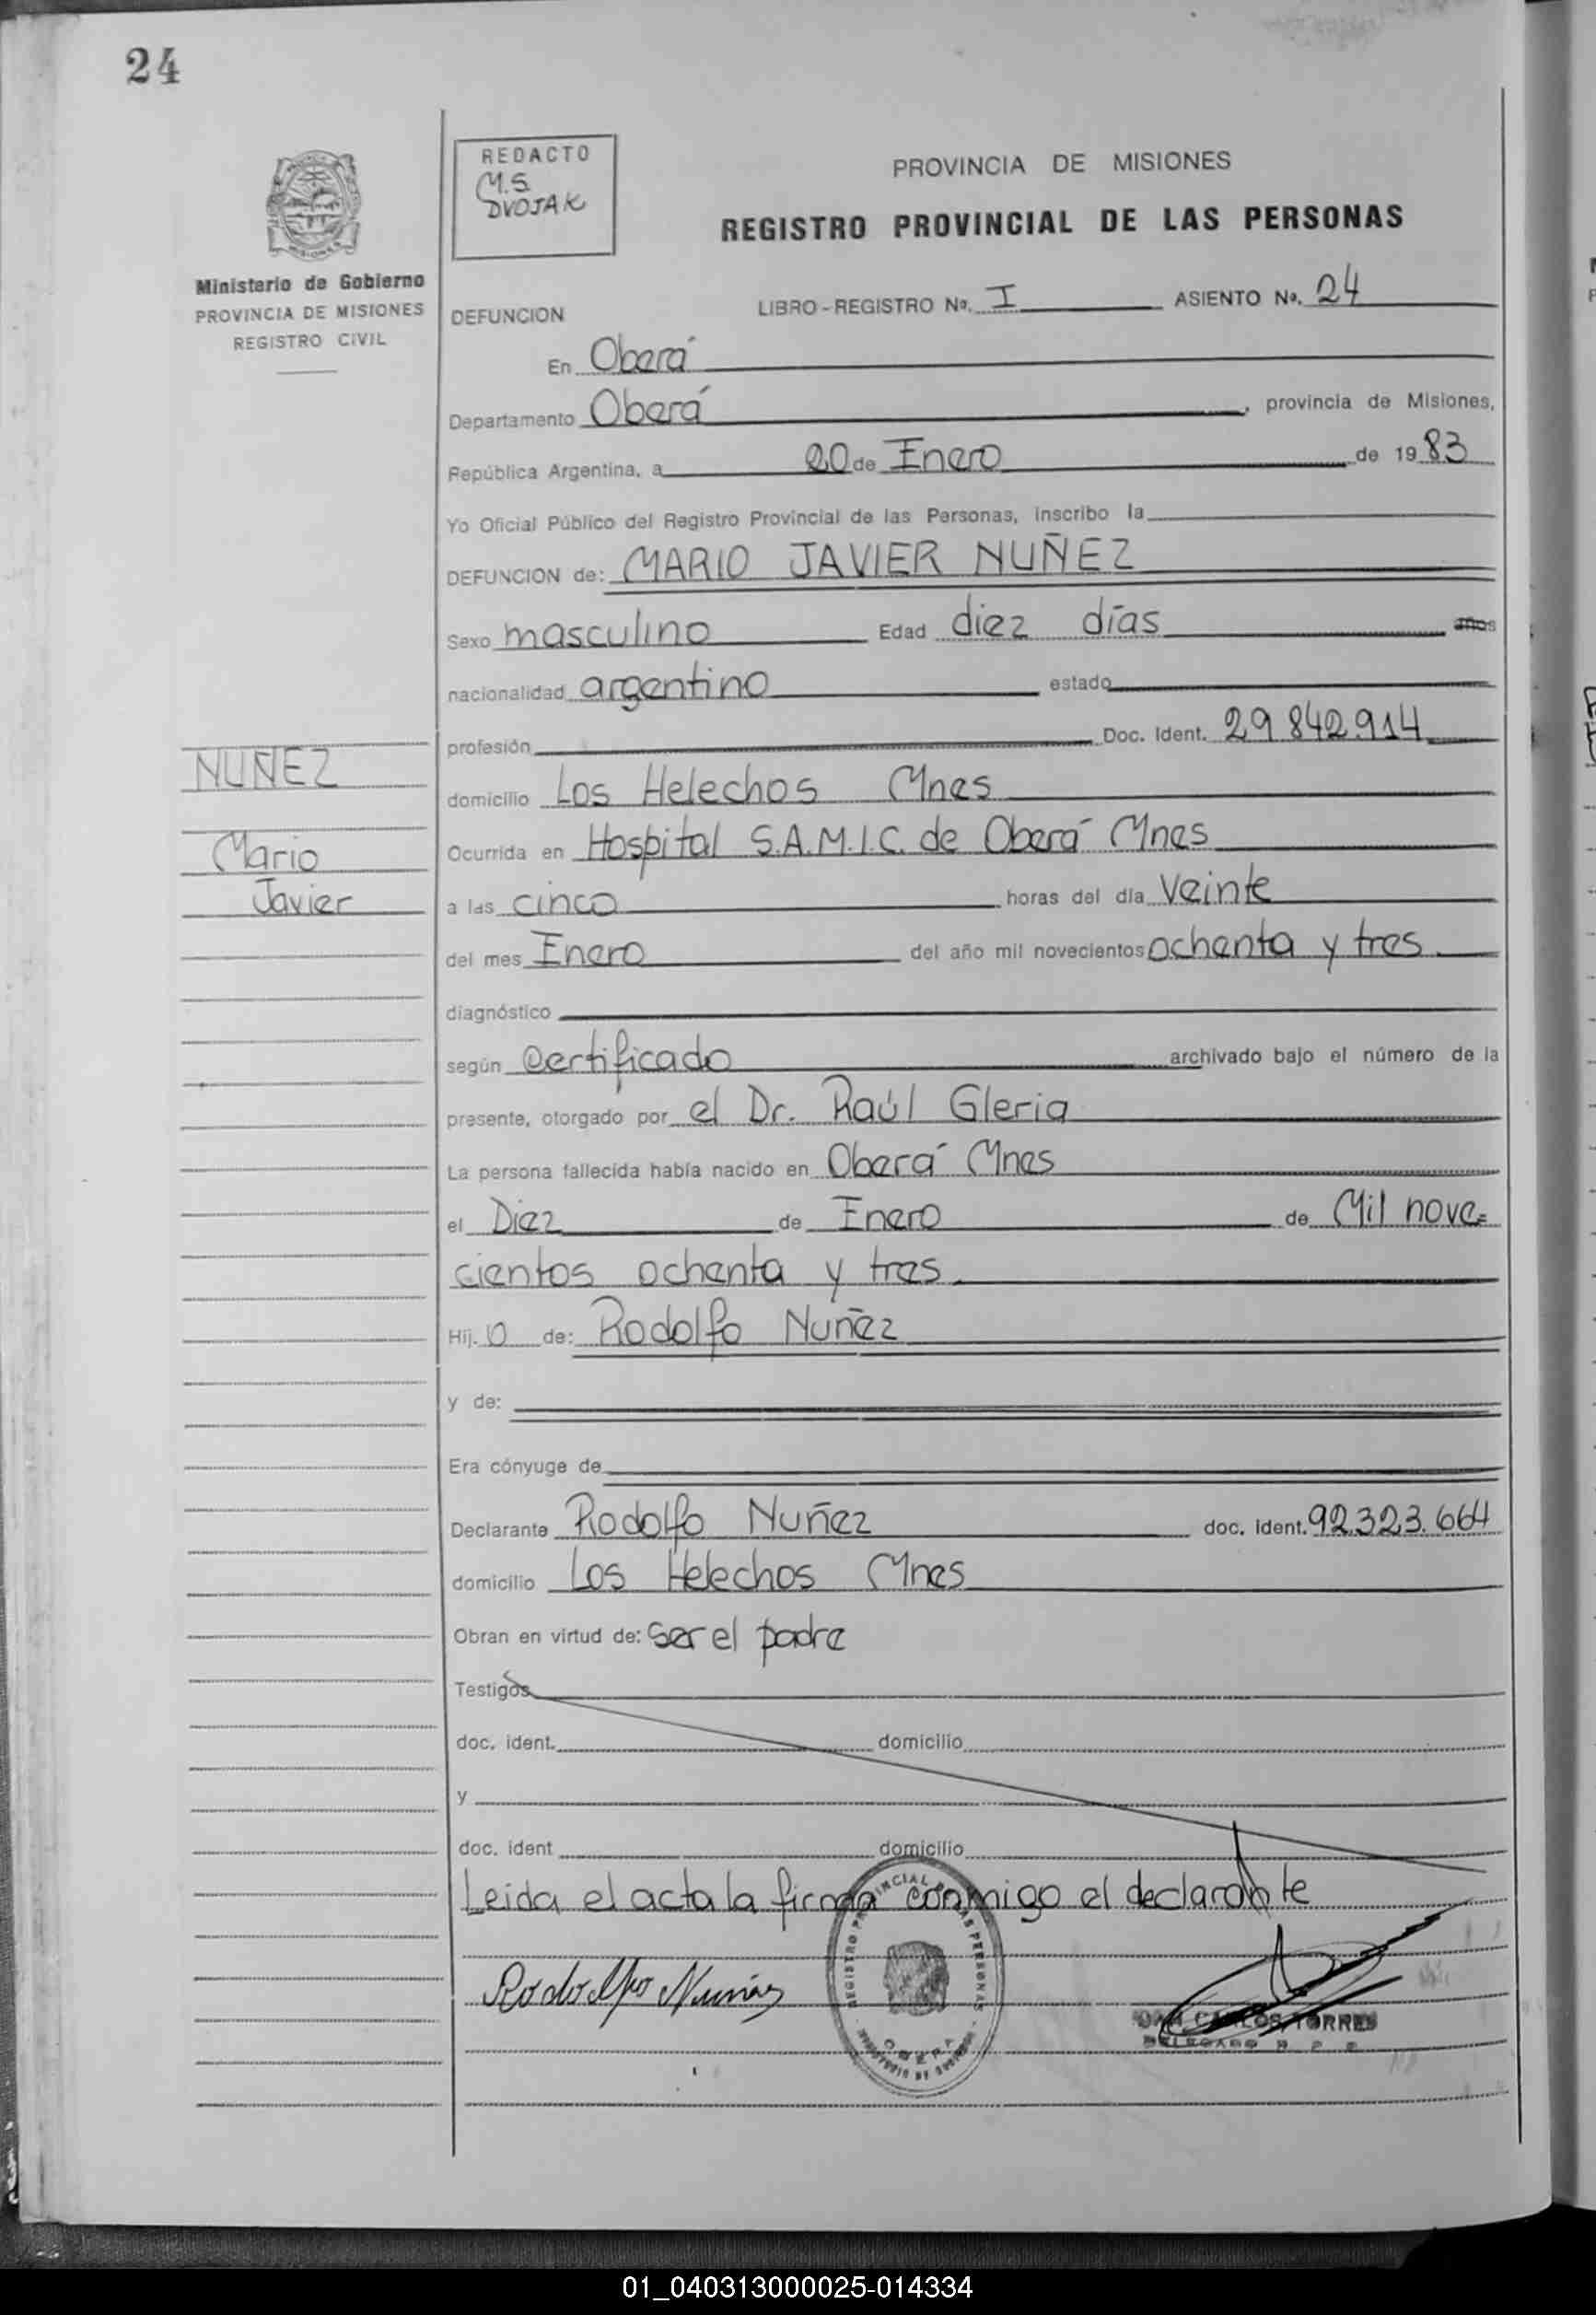 24
REDACTO
M.S.
DVOJAK
PROVINCIA DE MISIONES
REGISTRO PROVINCIAL DE LAS PERSONAS
Ministerio de Gobierno
PROVINCIA DE MISIONES
REGISTRO CIVIL
DEFUNCION LIBRO-REGISTRO No. I ASIENTO No. 24
En Oberá
Departamento Oberá, provincia de Misiones,
República Argentina, a 20 de Enero de 1983
Yo Oficial Público del Registro Provincial de las Personas, inscribo la
DEFUNCION de: MARIO JAVIER NUÑEZ
Sexo masculino Edad diez días años
nacionalidad argentino estado
profesión Doc. Ident. 29.842.914
NUÑEZ
Mario
Javier
domicilio Los Helechos Mnes
Ocurrida en Hospital S.A.M.I.C. de Oberá Mnes
a las cinco horas del día veinte
del mes Enero del año mil novecientos ochenta y tres
diagnóstico
según certificado archivado bajo el número de la
presente, otorgado por el Dr. Raúl Gleria
La persona fallecida había nacido en Oberá Mnes
el Diez de Enero de Mil nove=
cientos ochenta y tres.
Hij.o de: Rodolfo Nuñez
y de:
Era cónyuge de
Declarante Rodolfo Nuñez doc. ident. 92.323.664
domicilio Los Helechos Mnes
Obran en virtud de: ser el padre
Testigos
doc. ident. domicilio
y
doc. ident domicilio
Leida el acta la firma conmigo el declarante
Rodolfo Nuñez
REGISTRO PROVINCIAL DE LAS PERSONAS
OBERA
MINISTERIO DE GOBIERNO
CARLOS TORRES
DELEGADO R. P. P.
01_040313000025-014334